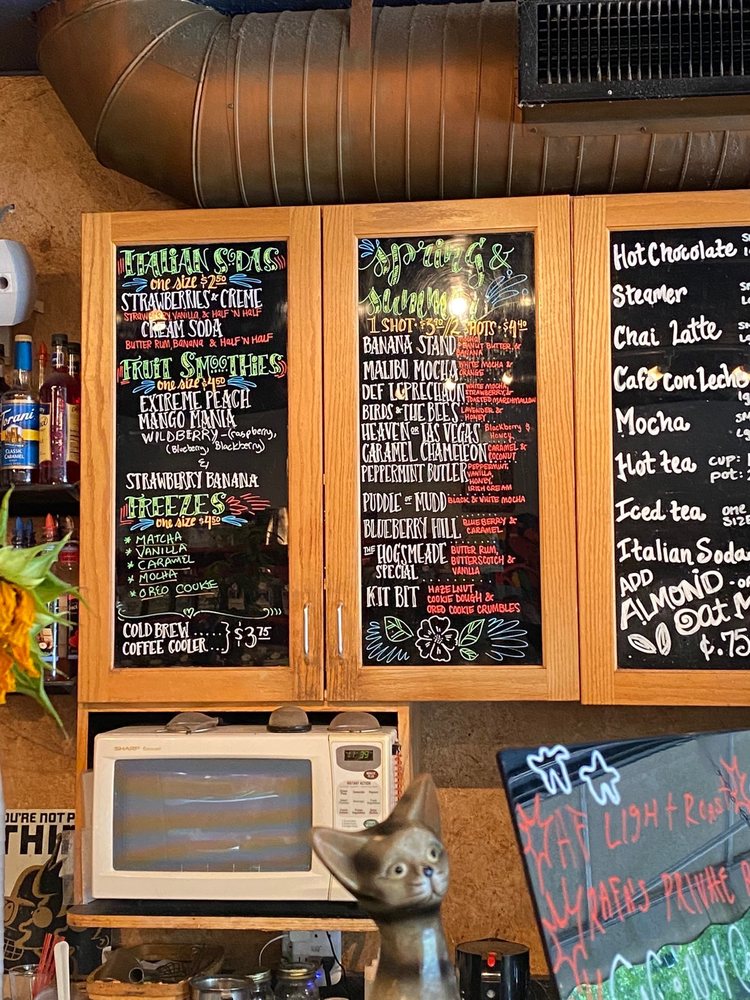 ITALIAN SODAS
one size $2.50
STRAWBERRIES & CREME
STRAWBERRY, VANILLA & HALF 'N HALF
CREAM SODA
BUTTER RUM, BANANA & HALF 'N HALF
FRUIT SMOOTHIES
one size $4.50
EXTREME PEACH
MANGO MANIA
WILDBERRY - (raspberry,
Blueberry, Blackberry)
&
STRAWBERRY BANANA
FREEZES
one size $4.50
* MATCHA
* VANILLA
* CARAMEL
* MOCHA
* OREO COOKIE
COLD BREW ......
COFFEE COOLER... } $3.75
Spring &
Summer
1 SHOT $3.90 / 2 SHOTS $4.40
BANANA STAND
PEANUT BUTTER, &
BANANA
MALIBU MOCHA WHITE MOCHA &
ORANGE
DEF LEPRECHAUN WHITE MOCHA,
STRAWBERRY, &
TOASTED MARSHMALLOW
BIRDS & THE BEES LAVENDER &
HONEY
HEAVEN OR LAS VEGAS Blackberry &
Honey
CARAMEL CHAMELEON CARAMEL &
COCONUT
PEPPERMINT BUTLER PEPPERMINT,
VANILLA,
HONEY,
IRISH CREAM
PUDDLE OF MUDD BLACK & WHITE MOCHA
BLUEBERRY HILL BLUEBERRY &
CARAMEL
THE HOGSMEADE SPECIAL BUTTER RUM,
BUTTERSCOTCH &
VANILLA
KIT BIT HAZELNUT,
COOKIE DOUGH &
OREO COOKIE CRUMBLES
Hot Chocolate
Steamer
Chai Latte
Cafe con Leche
Mocha
Hot tea cup:
pot:
Iced tea one
SIZE
Italian Soda
ADD
ALMOND - or
Oat M
¢.75
Torani
CLASSIC
CARAMEL
SHARP
YOU'RE NOT P
THI
Light Roast
PRIVATE